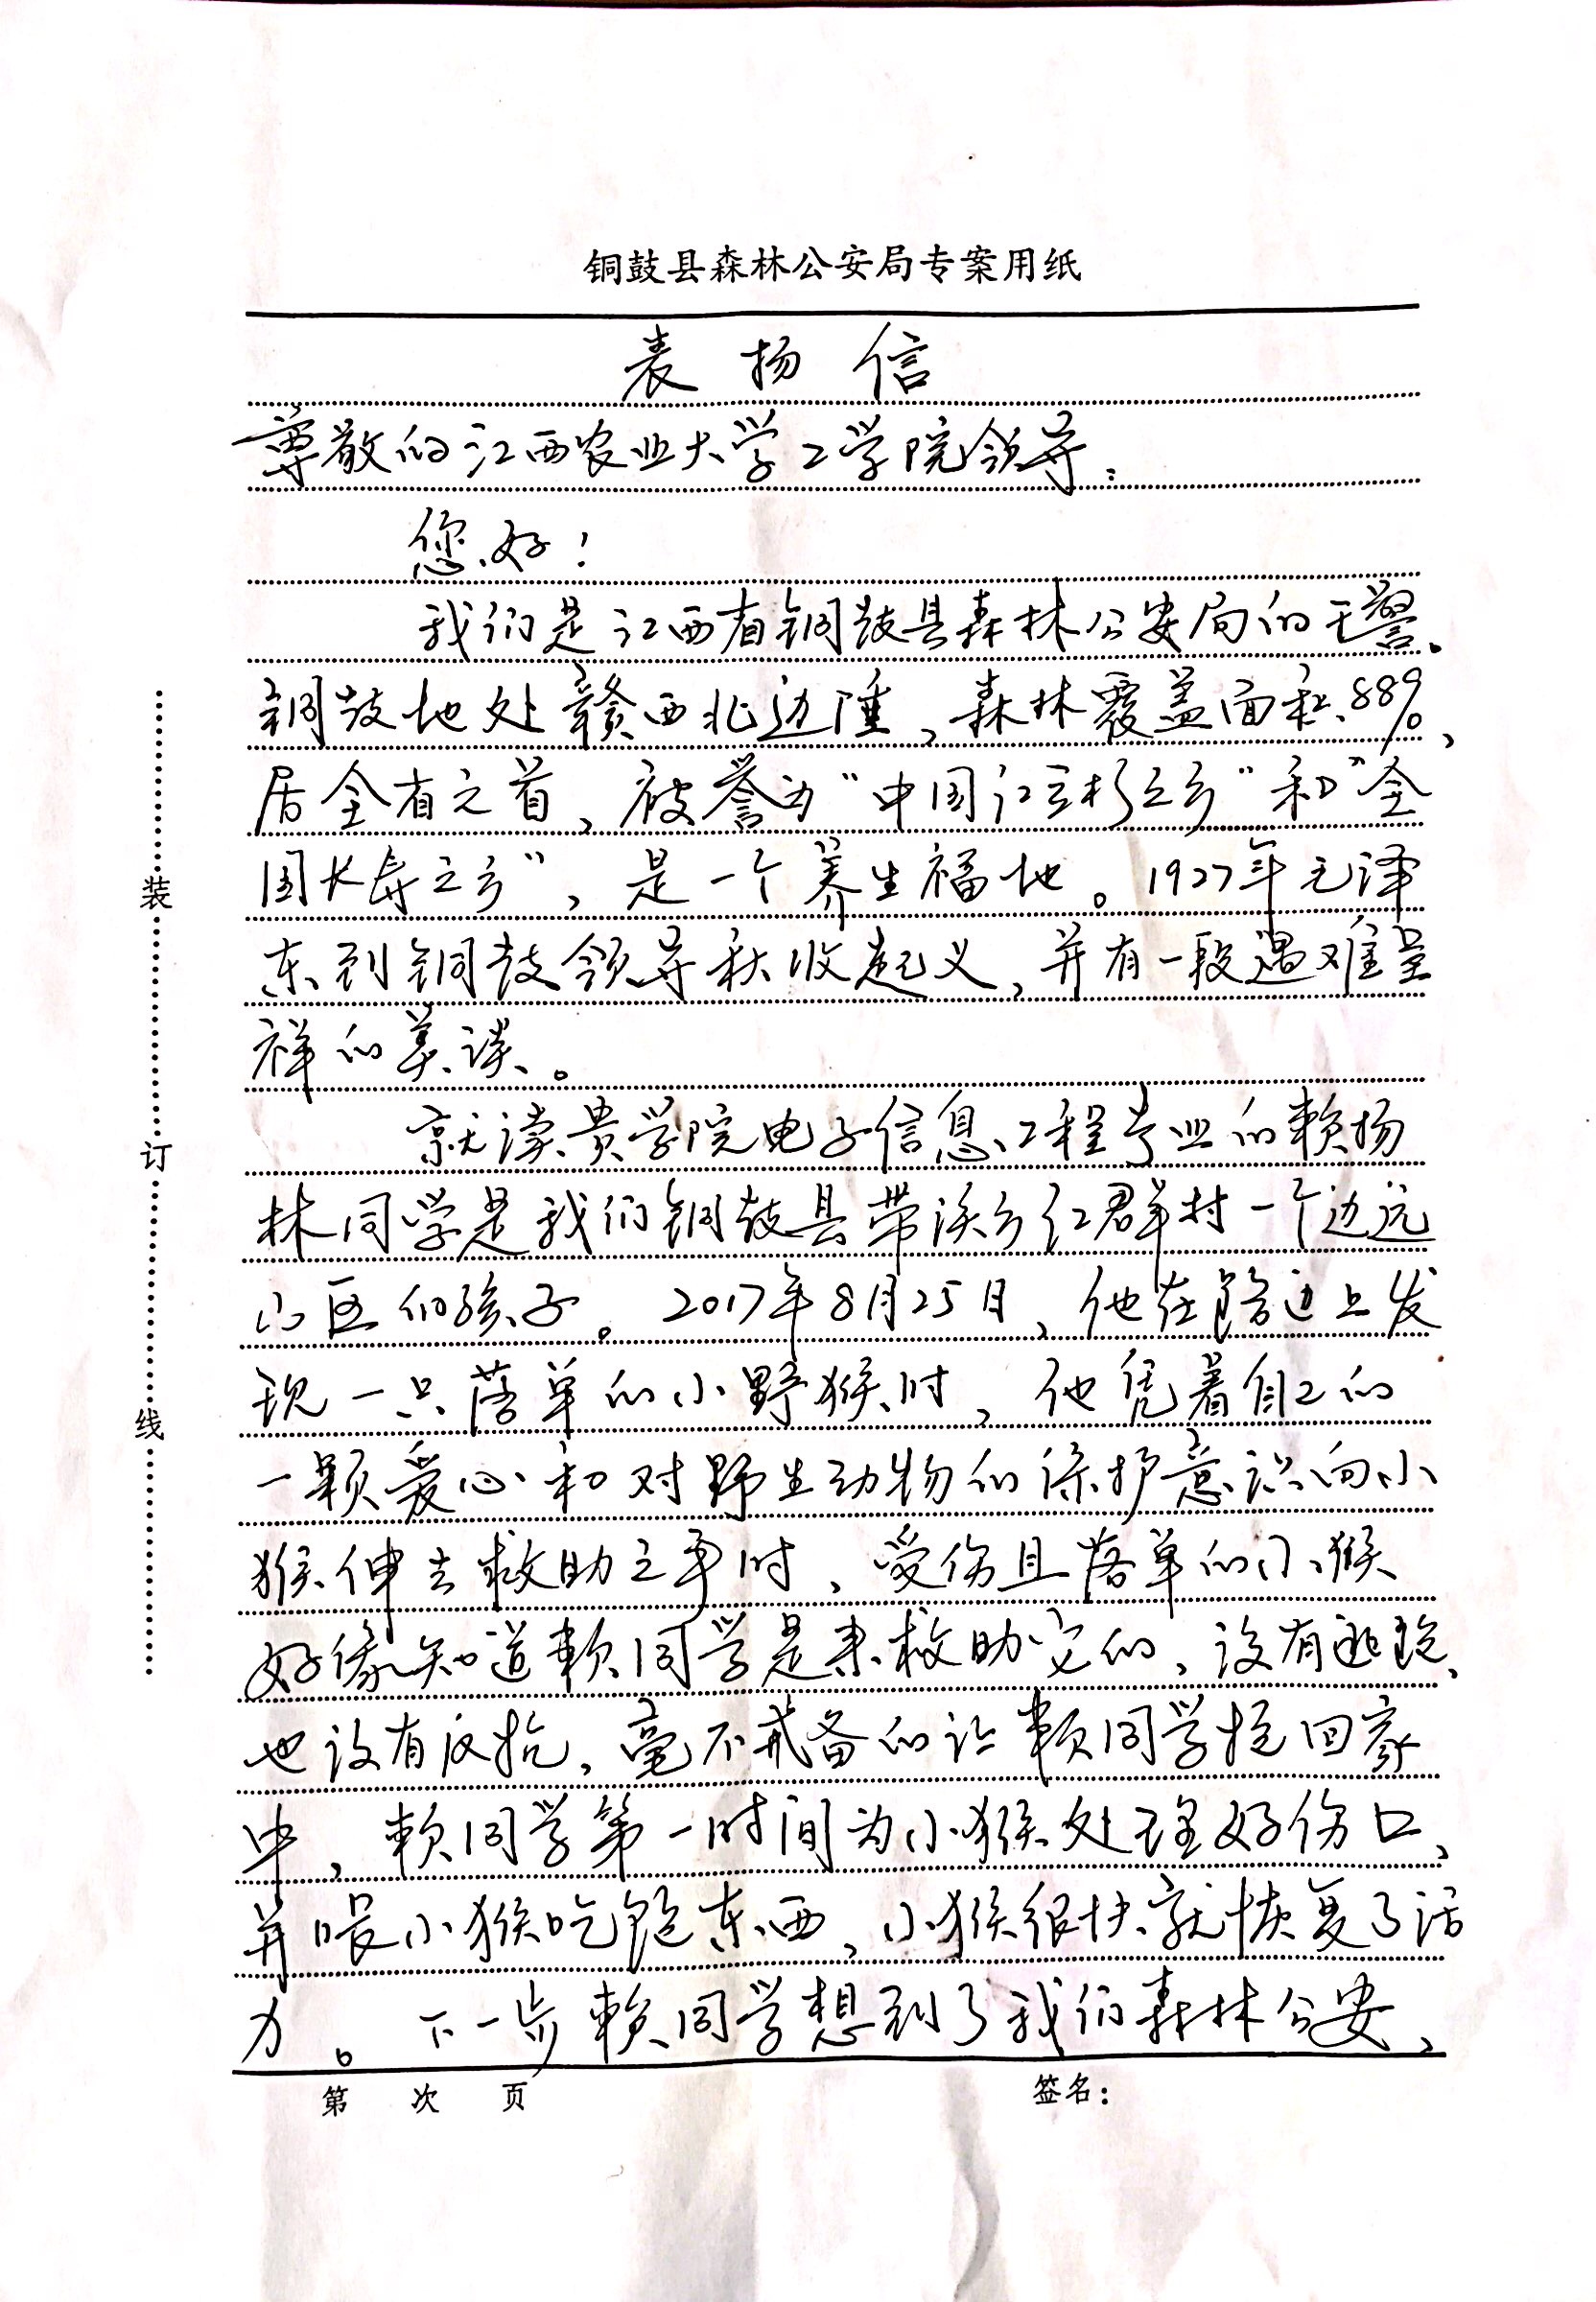 铜鼓县森林公安局专案用纸
表扬信
尊敬的江西农业大学工学院领导：
您好！
我们是江西省铜鼓县森林公安局的干警。
铜鼓地处赣西北边陲，森林覆盖面积88%，
居全省之首，被誉为“中国红豆杉之乡”和“全
国长寿之乡”，是一个养生福地。1927年毛泽
东到铜鼓领导秋收起义，并有一段遇难呈
祥的美谈。
就读贵学院电子信息工程专业的赖扬
林同学是我们铜鼓县带溪乡红群村一个边远
山区的孩子。2017年8月25日，他在路边上发
现一只落单的小野猴时，他凭着自己的
一颗爱心和对野生动物的保护意识向小
猴伸去救助之手时，受伤且落单的小猴
好像知道赖同学是来救助它的，没有逃跑、
也没有反抗，毫不戒备的让赖同学抱回家
中，赖同学第一时间为小猴处理好伤口，
并喂小猴吃饱东西，小猴很快就恢复了活
力。下一步赖同学想到了我们森林公安，
第 次 页 签名：
装
订
线